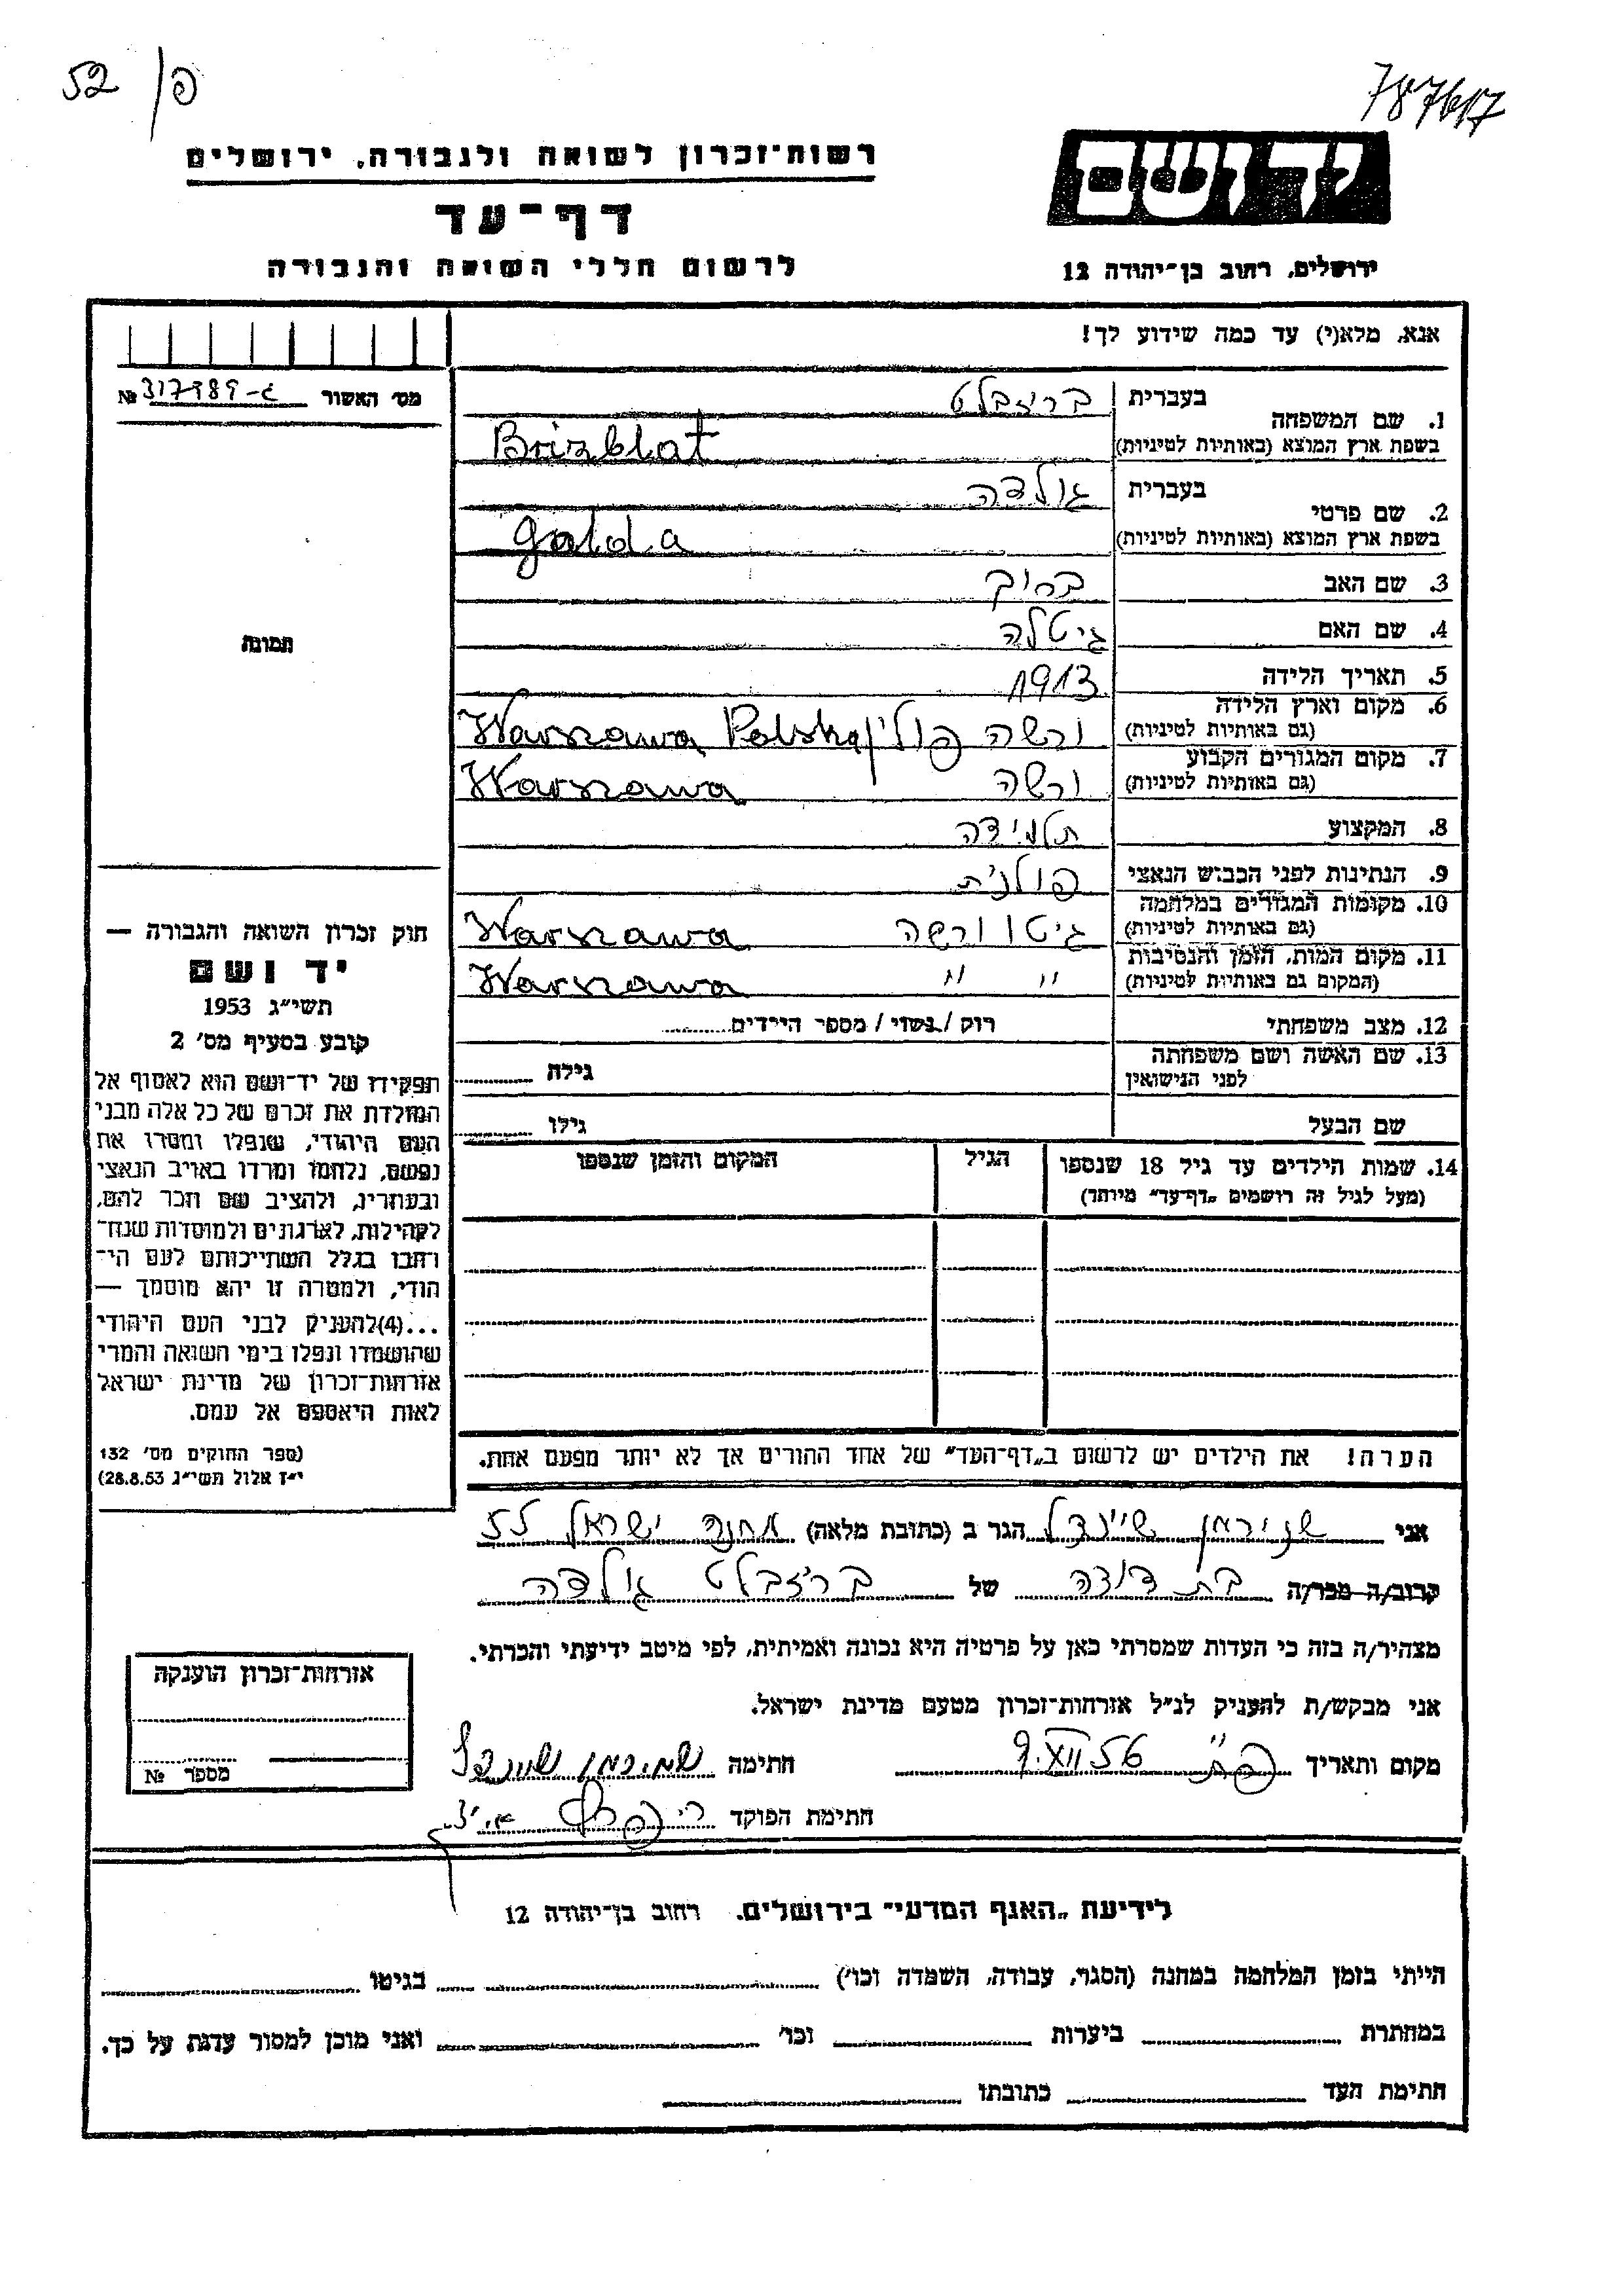 52 / פ
787617
רשות־זכרון לשואה ולגבורה, ירושלים
דף־עד
לרשום חללי השואה והגבורה
יד ושם
ירושלים, רחוב בן־יהודה 12
אנא, מלא(י) עד כמה שידוע לך!
מס׳ האשור 317989-ג №
1. שם המשפחה
בעברית ברזבלט
בשפת ארץ המוצא (באותיות לטיניות) Brizblat
2. שם פרטי
בעברית גולדה
בשפת ארץ המוצא (באותיות לטיניות) Golda
3. שם האב ברוך
4. שם האם גיטלה
5. תאריך הלידה 1913
6. מקום וארץ הלידה (גם באותיות לטיניות) ורשה פולין Warszawa Polska
7. מקום המגורים הקבוע (גם באותיות לטיניות) ורשה Warszawa
8. המקצוע תלמידה
9. הנתינות לפני הכבוש הנאצי פולנית
10. מקומות המגורים במלחמה (גם באותיות לטיניות) גיטו ורשה Warszawa
11. מקום המות, הזמן והנסיבות (המקום גם באותיות לטיניות) " " Warszawa
12. מצב משפחתי רוק / נשוי / מספר הילדים
13. שם האשה ושם משפחתה לפני הנישואין גילה
שם הבעל גילו
14. שמות הילדים עד גיל 18 שנספו (מעל לגיל זה רושמים „דף־עד" מיוחד)
הגיל
המקום והזמן שנספו
הערה! את הילדים יש לרשום ב„דף־העד" של אחד ההורים אך לא יותר מפעם אחת.
תמונה
חוק זכרון השואה והגבורה —
יד ושם
תשי״ג 1953
קובע בסעיף מס׳ 2
תפקידו של יד־ושם הוא לאסוף אל
המולדת את זכרם של כל אלה מבני
העם היהודי, שנפלו ומסרו את
נפשם, נלחמו ומרדו באויב הנאצי
ובעוזריו, ולהציב שם וזכר להם,
לקהילות, לארגונים ולמוסדות שנח־
רחבו בגלל השתייכותם לעם הי־
הודי, ולמטרה זו יהא מוסמך —
...(4)להעניק לבני העם היהודי
שהושמדו ונפלו בימי השואה והמרי
אזרחות־זכרון של מדינת ישראל
לאות היאספם אל עמם.
(ספר החוקים מס׳ 132
י״ז אלול תשי״ג 28.8.53)
אני שנירמן שיינדל הגר ב (כתובת מלאה) מחנה ישראל 55
קרוב/ה מכר/ה בת דודה של ברזבלט גולדה
מצהיר/ה בזה כי העדות שמסרתי כאן על פרטיה היא נכונה ואמיתית, לפי מיטב ידיעתי והכרתי.
אני מבקש/ת להעניק לנ״ל אזרחות־זכרון מטעם מדינת ישראל.
מקום ותאריך 9.XII 56 חתימה שנירמן שיינדל
חתימת הפוקד
אזרחות־זכרון הוענקה
מספר №
לידיעת „האגף המדעי" בירושלים, רחוב בן־יהודה 12
הייתי בזמן המלחמה במחנה (הסגר, עבודה, השמדה וכו׳) בגיטו
במחתרת ביערות וכו׳ ואני מוכן למסור עדות על כך.
חתימת העד כתובתו